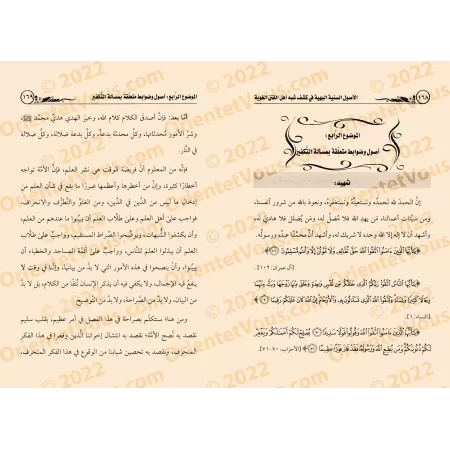 الأصول السنية البهية في كشف شبه أهل الفتن الغوية
١٦٨
الموضوع الرابع:
أصول وضوابط متعلقة بمسألة التكفير
تمهيد:
إنَّ الحمدَ لله نَحمدُه ونستعينُه ونستغفرُه، ونعوذ بالله من شرور أنفسنا،
ومن سيئات أعمالنا، مَن يهدِ الله فلا مُضلَّ له، ومَن يُضلل فلا هاديَ له،
وأشهد أن لا إله إلا الله وحده لا شريك له، وأشهد أن محمَّدًا عبدُه ورسوله.
﴿يَا أَيُّهَا الَّذِينَ آمَنُوا اتَّقُوا اللَّهَ حَقَّ تُقَاتِهِ وَلَا تَمُوتُنَّ إِلَّا وَأَنْتُمْ مُسْلِمُونَ ١٠٢﴾
[آل عمران: ١٠٢].
﴿يَا أَيُّهَا النَّاسُ اتَّقُوا رَبَّكُمُ الَّذِي خَلَقَكُمْ مِنْ نَفْسٍ وَاحِدَةٍ وَخَلَقَ مِنْهَا زَوْجَهَا وَبَثَّ مِنْهُمَا
رِجَالًا كَثِيرًا وَنِسَاءً وَاتَّقُوا اللَّهَ الَّذِي تَسَاءَلُونَ بِهِ وَالْأَرْحَامَ إِنَّ اللَّهَ كَانَ عَلَيْكُمْ رَقِيبًا ١﴾
[النساء: ١].
﴿يَا أَيُّهَا الَّذِينَ آمَنُوا اتَّقُوا اللَّهَ وَقُولُوا قَوْلًا سَدِيدًا ٧٠ يُصْلِحْ لَكُمْ أَعْمَالَكُمْ وَيَغْفِرْ
لَكُمْ ذُنُوبَكُمْ وَمَنْ يُطِعِ اللَّهَ وَرَسُولَهُ فَقَدْ فَازَ فَوْزًا عَظِيمًا ٧١﴾ [الأحزاب: ٧٠-٧١].
الموضوع الرابع: أصول وضوابط متعلقة بمسألة التكفير
١٦٩
أمَّا بعد: فإنَّ أصدق الكلام كلام الله، وخيرَ الهدي هديُ محمَّد ﷺ،
وشرَّ الأمور مُحدثاتها، وكلَّ محدثة بدعةٌ، وكلَّ بدعة ضلالة، وكلَّ ضلالة
في النَّار.
فإنَّه من المعلوم أنَّ فريضة الوقت هي نشر العلم، فإنَّ أمام العلم
أخطارًا كثيرة، وإنَّ من أخطرها وأعظمها ضررًا ما يقع في شأن العلم من
إدخال ما ليس من الدِّين في الدِّين، ومن الغلوِّ والتطرُّف والانحراف،
فواجب على أهل العلم وعلى طلَّاب العلم أن يبيِّنوا ما عندهم من العلم،
وأن يكشفوا الشُّبهات، ويوضِّحوا الصِّراط المستقيم، وواجبٌ على طلَّاب
العلم أن يبذلوا العلم للنَّاس، وواجبٌ على أئمَّة المساجد والخطباء أن
يبيِّنوا، وأن ينصحوا في هذه الأمور التي لا بدَّ من بيانها، وإنَّنا في وقت لا
ينفع فيه الإجمال، ولا يكفي فيه أن يذكر الإنسان نُتفًا من الكلام، بل لا بدَّ
من البيان، ولا بدَّ من الصَّراحة، ولا بدَّ من التوضيح.
ومن هنا سنتكلَّم بصراحة في هذا الفصل في أمر عظيم، بقلب سليم
نقصد به نُصح الأمَّة؛ نقصد به انتشال إخواننا الَّذين وقعوا في هذا الفكر
المنحرف، ونقصد به تحصين شبابنا من الوقوع في هذا الفكر المنحرف،
OrientetVous © 2022